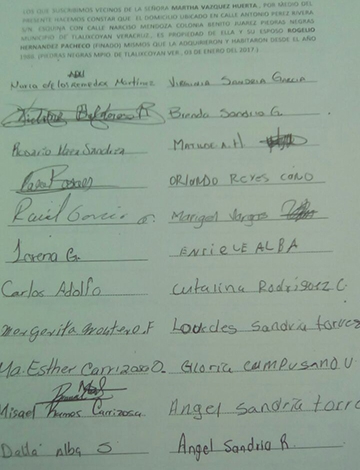 LOS QUE SUSCRIBIMOS VECINOS DE LA SEÑORA MARTHA VAZQUEZ HUERTA, POR MEDIO DEL
PRESENTE HACEMOS CONSTAR QUE EL DOMICILIO UBICADO EN CALLE ANTONIO PEREZ RIVERA
S/N. ESQUINA CON CALLE NARCISO MENDOZA COLONIA BENITO JUAREZ PIEDRAS NEGRAS
MUNICIPIO DE TLALIXCOYAN VERACRUZ, ES PROPIEDAD DE ELLA Y SU ESPOSO ROGELIO
HERNANDEZ PACHECO (FINADO) MISMOS QUE LA ADQUIRIERON Y HABITARON DESDE EL AÑO
1988. (PIEDRAS NEGRAS MPIO. DE TLALIXCOYAN VER., 03 DE ENERO DEL 2017.)
Maria de los Remedios Martinez Virginia Sandria Garcia
Brenda Sandria G.
Rosario Sandria MATILDE A.H
ORLANDO REYES CANO
Raul Garcia Marigel Vargas
Lorena G. ENRIQUE ALBA
Carlos Adolfo Catalina Rodriguez C.
Margarita Montero.F Lourdes Sandria torres
Ma. Esther Carrizosa O. Gloria CAMPUSANO U
Misael Ramos Carrizosa Angel sandria torre
Dalla Alba S Angel Sandria R.